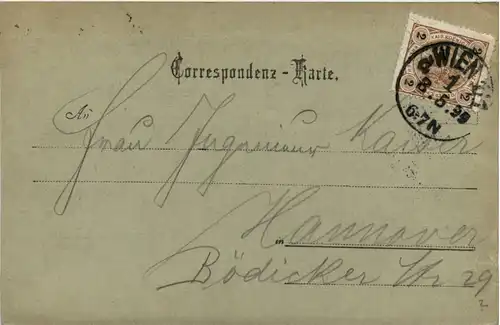 Correspondenz - Karte.
2 2
WIEN
1
8.5.99
6-7N
An
Frau Ingenieur Kaiser
in Hannover
Bödicker Str 29
2